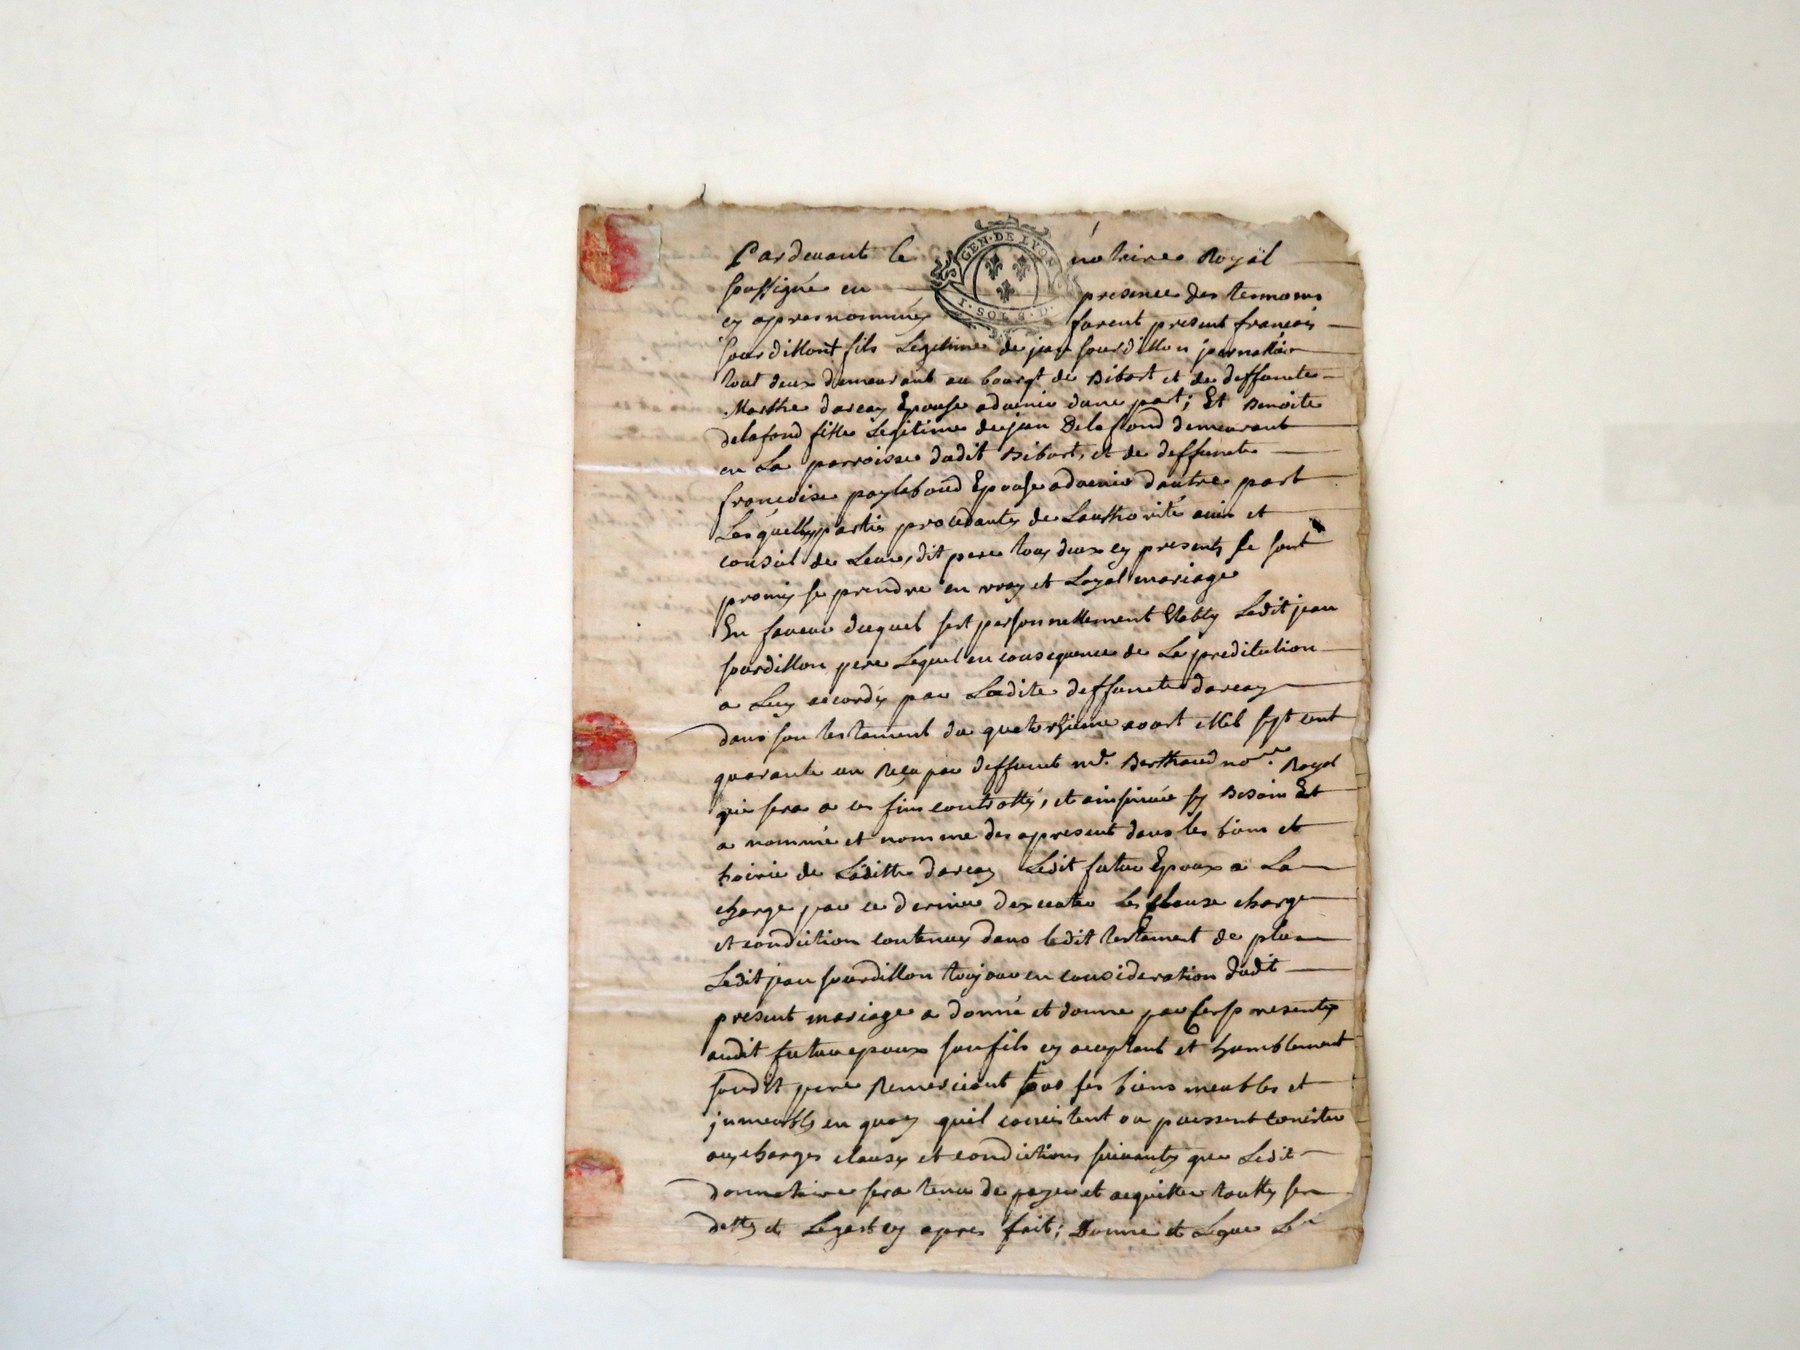 Pardevant le notaire Royal
GEN. DE LYON
I. SOL 8. D.
soussigné en presence des temoins
cy apres nommés furent present francois
sourdillont fils Legitime de jean sourdillon journallier
tout deux demeurant au bourgt de Bibost et de deffuncte
Marthe darcay Epouse advenir dune part; Et Benoite
delafond fille Legitime de jean Delafond demeurant
en La parroisse dudit Bibost, et de deffuncte
francoise Epouse advenir dautre part
Lesquelles parties procedantes de Lauthorité avis et
conseil de Leurs dit pere tous deux cy presents se sont
promis se prendre en vray et Loyal mariage
En faveur duquel sest personnellement Etably Ledit jean
sourdillon pere Lequel en consequence de La
a Luy accordés par Ladite deffuncte darcay
dans son testament du quatorzieme aoust Mil sept cent
quarante un Reçu par deffunct me. Berthaud nore. Royal
qui sera a ces fins controllé, et insinué sy Besoin Et
a nommé et nomme des apresent dans les biens et
hoirie de Laditte darcay Ledit futur Epoux a La
charge par ce dernier dexecuter Les clause charge
et condition contenues dans ledit testament de plus
Ledit jean sourdillon toujour en consideration dudit
present mariage a donné et donne par Ces presentes
audit futur epoux son fils cy aceptant et humblement
sondit pere Remerciant tous ses biens meubles et
jmeubles en quoy quil consistent ou puissent consister
aux charges clauses et conditions suivantes que Ledit
donnataire sera tenu de payer et acquitter touttes ses
dettes et Legast cy apres fait; Donne et Legue Le